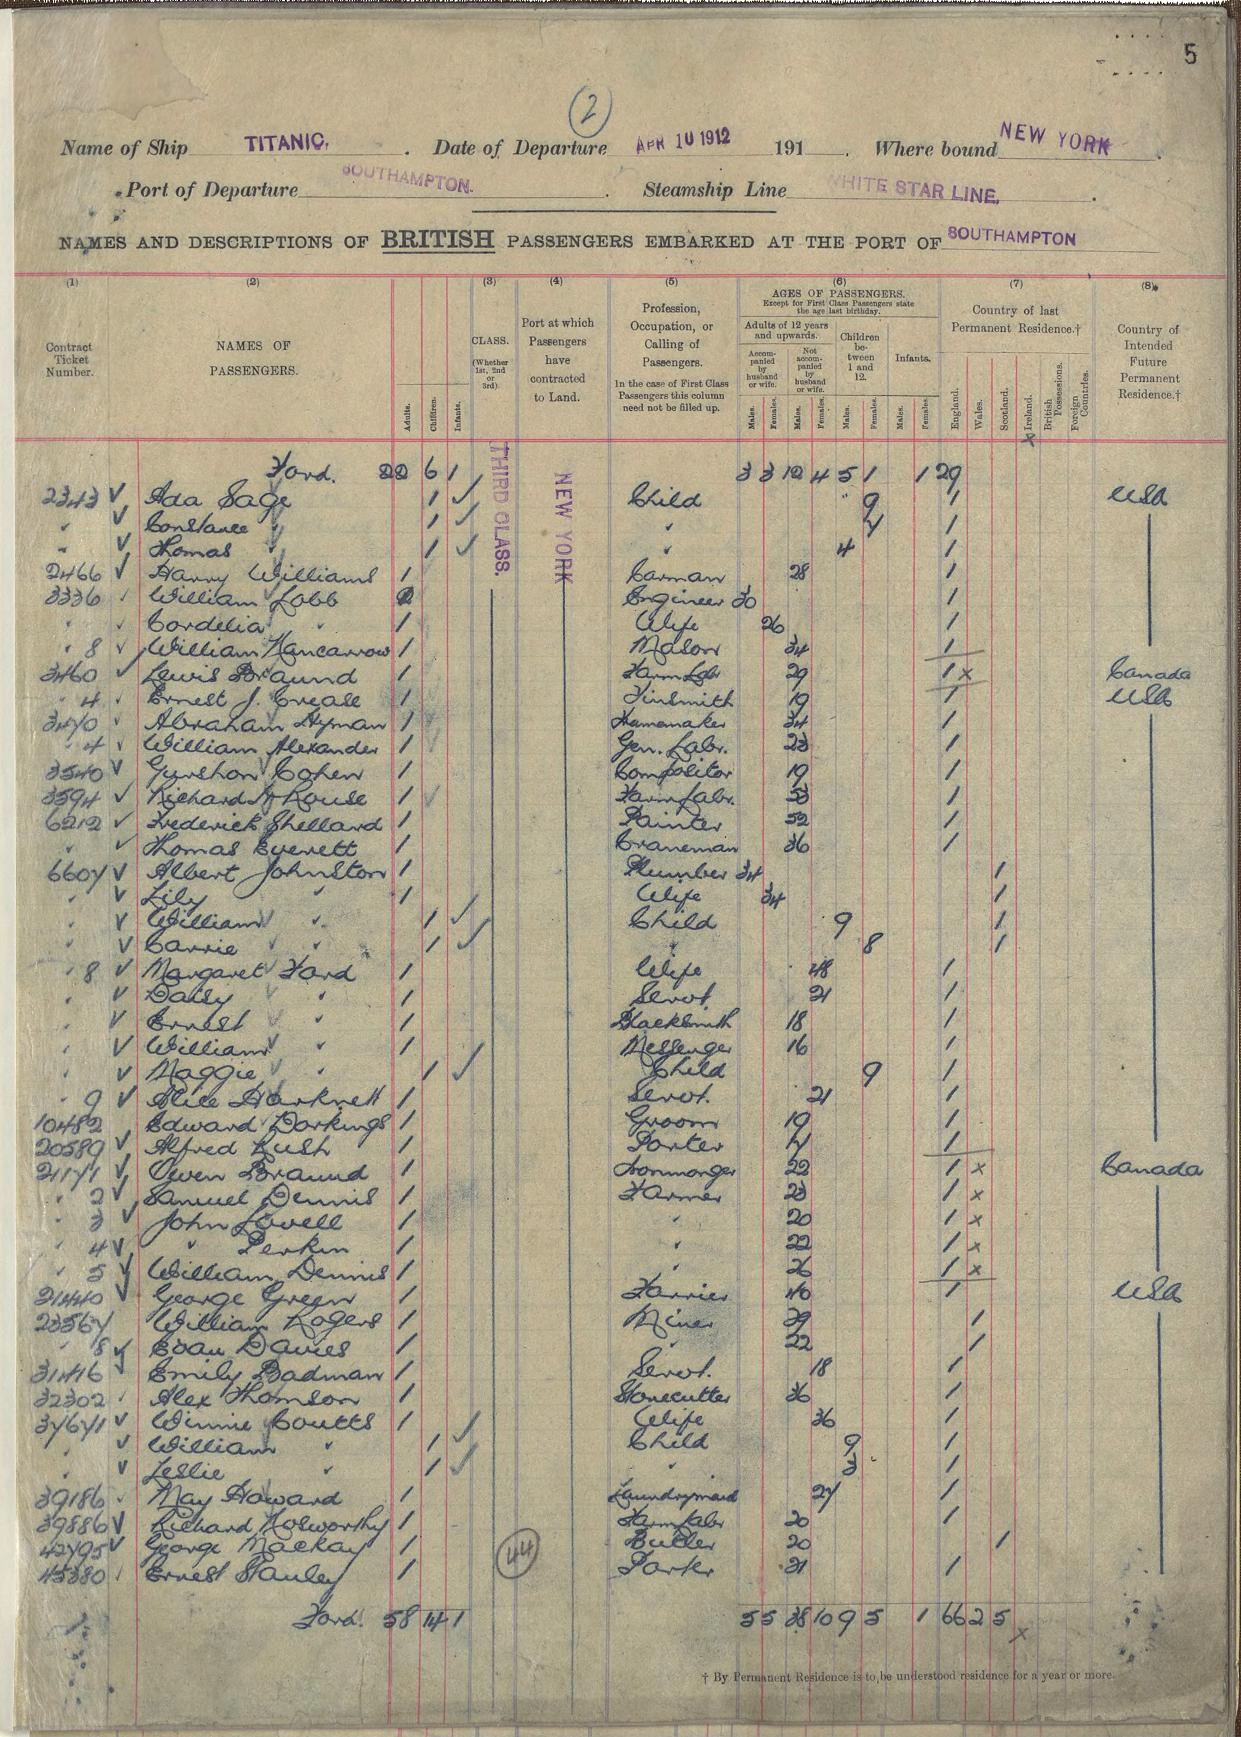 5
2
Name of Ship TITANIC. Date of Departure APR 10 1912 191 . Where bound NEW YORK
Port of Departure SOUTHAMPTON. Steamship Line WHITE STAR LINE.
NAMES AND DESCRIPTIONS OF BRITISH PASSENGERS EMBARKED AT THE PORT OF SOUTHAMPTON
(1) (2) (3) (4) (5) (6) (7) (8)
Contract Ticket Number.
NAMES OF PASSENGERS.
Adults. Children. Infants.
CLASS. (Whether 1st, 2nd or 3rd).
Port at which Passengers have contracted to Land.
Profession, Occupation, or Calling of Passengers.
In the case of First Class Passengers this column need not be filled up.
AGES OF PASSENGERS.
Except for First Class Passengers state the age last birthday.
Adults of 12 years and upwards.
Accompanied by husband or wife.
Not accompanied by husband or wife.
Children between 1 and 12.
Infants.
Males. Females. Males. Females. Males. Females. Males. Females.
Country of last Permanent Residence.†
England. Wales. Scotland. Ireland. British Possessions. Foreign Countries.
x
Country of Intended Future Permanent Residence.†
THIRD CLASS.
NEW YORK
Ford. 22 6 1 3 3 12 4 5 1 1 29
2343 Ada Sage 1 Child 9 1 USA
" Constance " 1 " 7 1
" Thomas " 1 " 4 1
2466 Harry Williams 1 Carman 28 1
3336 William Lobb Engineer 30 1
" Cordelia " 1 Wife 26 1
" 8 William Nancarrow 1 Mason 34 1
3460 Lewis Braund 1 Farm Labr 29 1 x Canada
" 4 Ernest J. Crease 1 Tinsmith 19 1 USA
3470 Abraham Hyman 1 Framemaker 34 1
" 4 William Alexander 1 Gen. Labr. 23 1
3540 Gurshon Cohen 1 Compositor 19 1
3594 Richard H Rouse 1 Farm Labr. 53 1
6212 Frederick Shellard 1 Painter 52 1
" Thomas Everett 1 Craneman 36 1
6607 Albert Johnston 1 Plumber 34 1
" Lily " 1 Wife 34 1
" William " 1 Child 9 1
" Carrie " 1 " 8 1
" 8 Margaret Ford 1 Wife 48 1
" Daisy " 1 Servt. 21 1
" Ernest " 1 Blacksmith 18 1
" William " 1 Messenger 16 1
" Maggie " 1 Child 9 1
" 9 Alice Harknett 1 Servt. 21 1
10482 Edward Dorkings 1 Groom 19 1
20589 Alfred Rush 1 Porter 17 1
21171 Owen Braund 1 Ironmonger 22 1 x Canada
" 2 Samuel Dennis 1 Farmer 23 1 x
" 3 John Lovell 1 " 20 1 x
" 4 " Perkin 1 " 22 1 x
" 5 William Dennis 1 " 26 1 x
21440 George Green 1 Farrier 40 1 USA
23567 William Rogers 1 Miner 29 1
" 8 Evan Davies 1 " 22 1
31416 Emily Badman 1 Servt. 18 1
32302 Alex Thomson 1 Stonecutter 36 1
37671 Winnie Coutts 1 Wife 36 1
" William " 1 Child 9 1
" Leslie " 1 " 3 1
39186 May Howard 1 Laundrymaid 27 1
39886 Richard Nosworthy 1 Farm Labr 20 1
42795 George Mackay 1 Butler 20 1
45380 Ernest Stanley 1 Porter 21 1
44
Ford. 58 14 1 5 5 38 10 9 5 1 66 2 5 x
† By Permanent Residence is to be understood residence for a year or more.